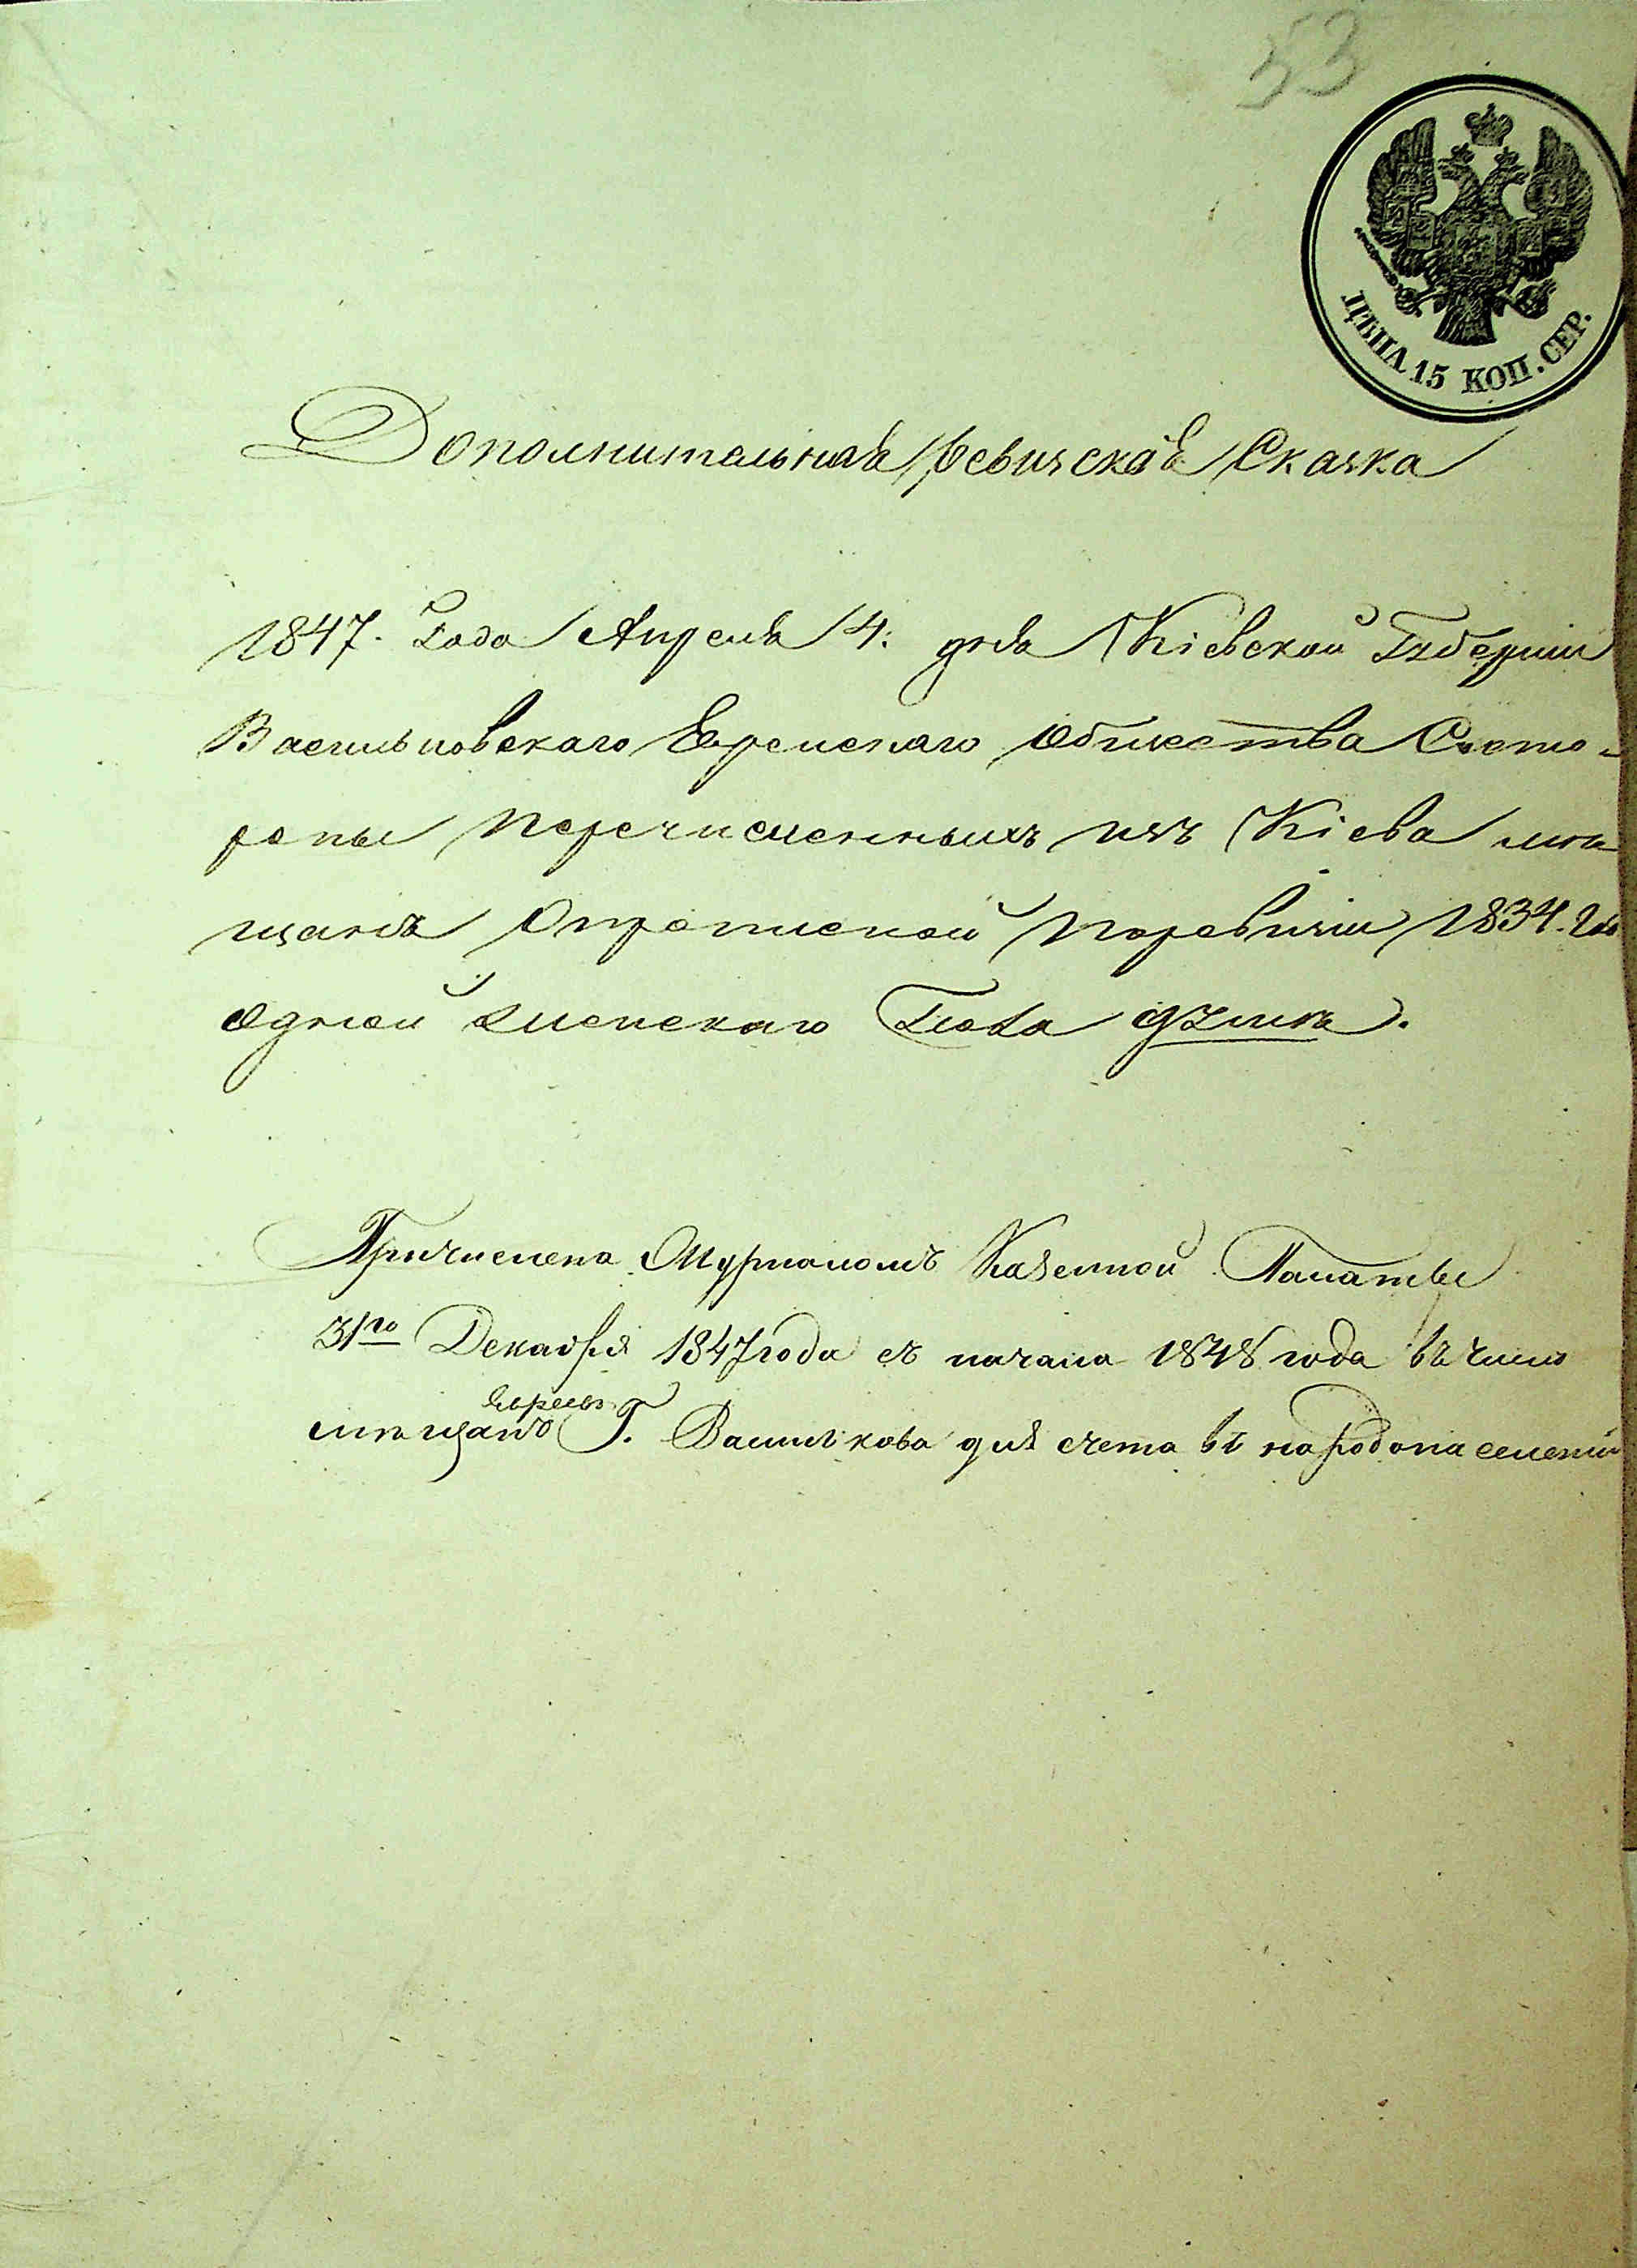 53
ЦѢНА 15 КОП. СЕР.
Дополнительная ревизская Сказка
1847. Года Апреля 4. дня Кіевской Губерніи
Васильковскаго Еврейскаго Общества
перечисленныхъ изъ Кіева мѣ
щанъ поревизіи 1834. го
одной женскаго Пола душѣ.
Причислена Журналомъ Казенной Палаты
31го Декабря 1847 года съ начала 1848 года въ число
евреевъ
мѣщанъ Г. Василькова для счета въ народонаселеніи